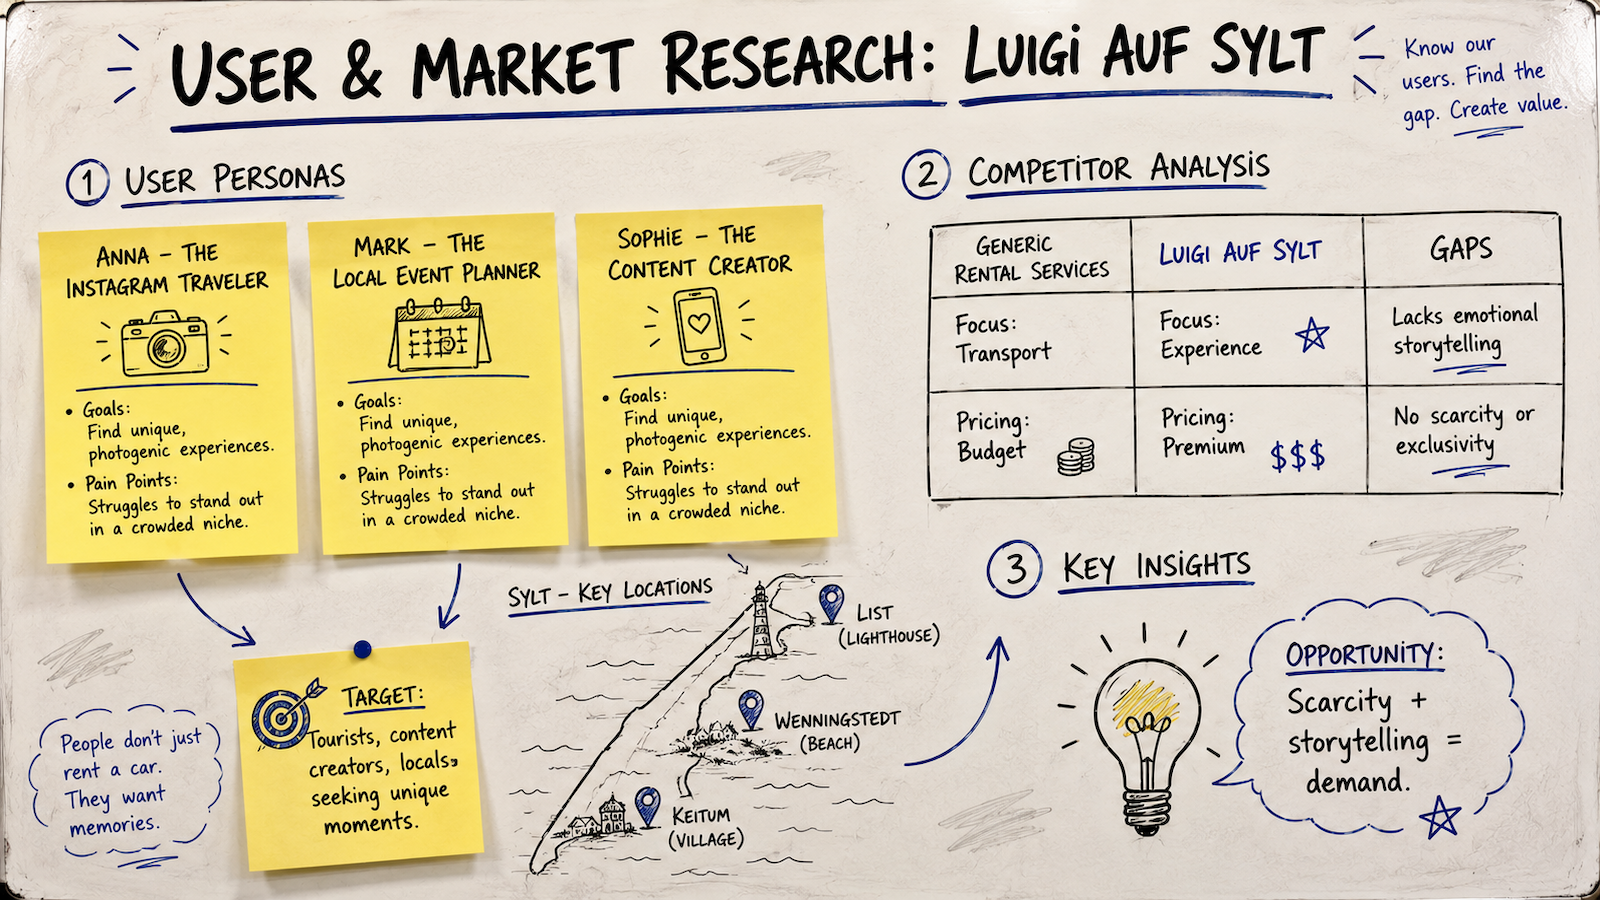 USER & MARKET RESEARCH: LUIGI AUF SYLT
Know our
users. Find the
gap. Create value.
1 USER PERSONAS
ANNA – THE
INSTAGRAM TRAVELER
• Goals:
Find unique,
photogenic experiences.
• Pain Points:
Struggles to stand out
in a crowded niche.
MARK – THE
LOCAL EVENT PLANNER
• Goals:
Find unique,
photogenic experiences.
• Pain Points:
Struggles to stand out
in a crowded niche.
SOPHIE – THE
CONTENT CREATOR
• Goals:
Find unique,
photogenic experiences.
• Pain Points:
Struggles to stand out
in a crowded niche.
TARGET:
Tourists, content
creators, locals,
seeking unique
moments.
People don't just
rent a car.
They want
memories.
SYLT – KEY LOCATIONS
LIST
(LIGHTHOUSE)
WENNINGSTEDT
(BEACH)
KEITUM
(VILLAGE)
2 COMPETITOR ANALYSIS
GENERIC
RENTAL SERVICES
LUIGI AUF SYLT
GAPS
Focus:
Transport
Focus:
Experience
Lacks emotional
storytelling
Pricing:
Budget
Pricing:
Premium $$$
No scarcity or
exclusivity
3 KEY INSIGHTS
OPPORTUNITY:
Scarcity +
storytelling =
demand.